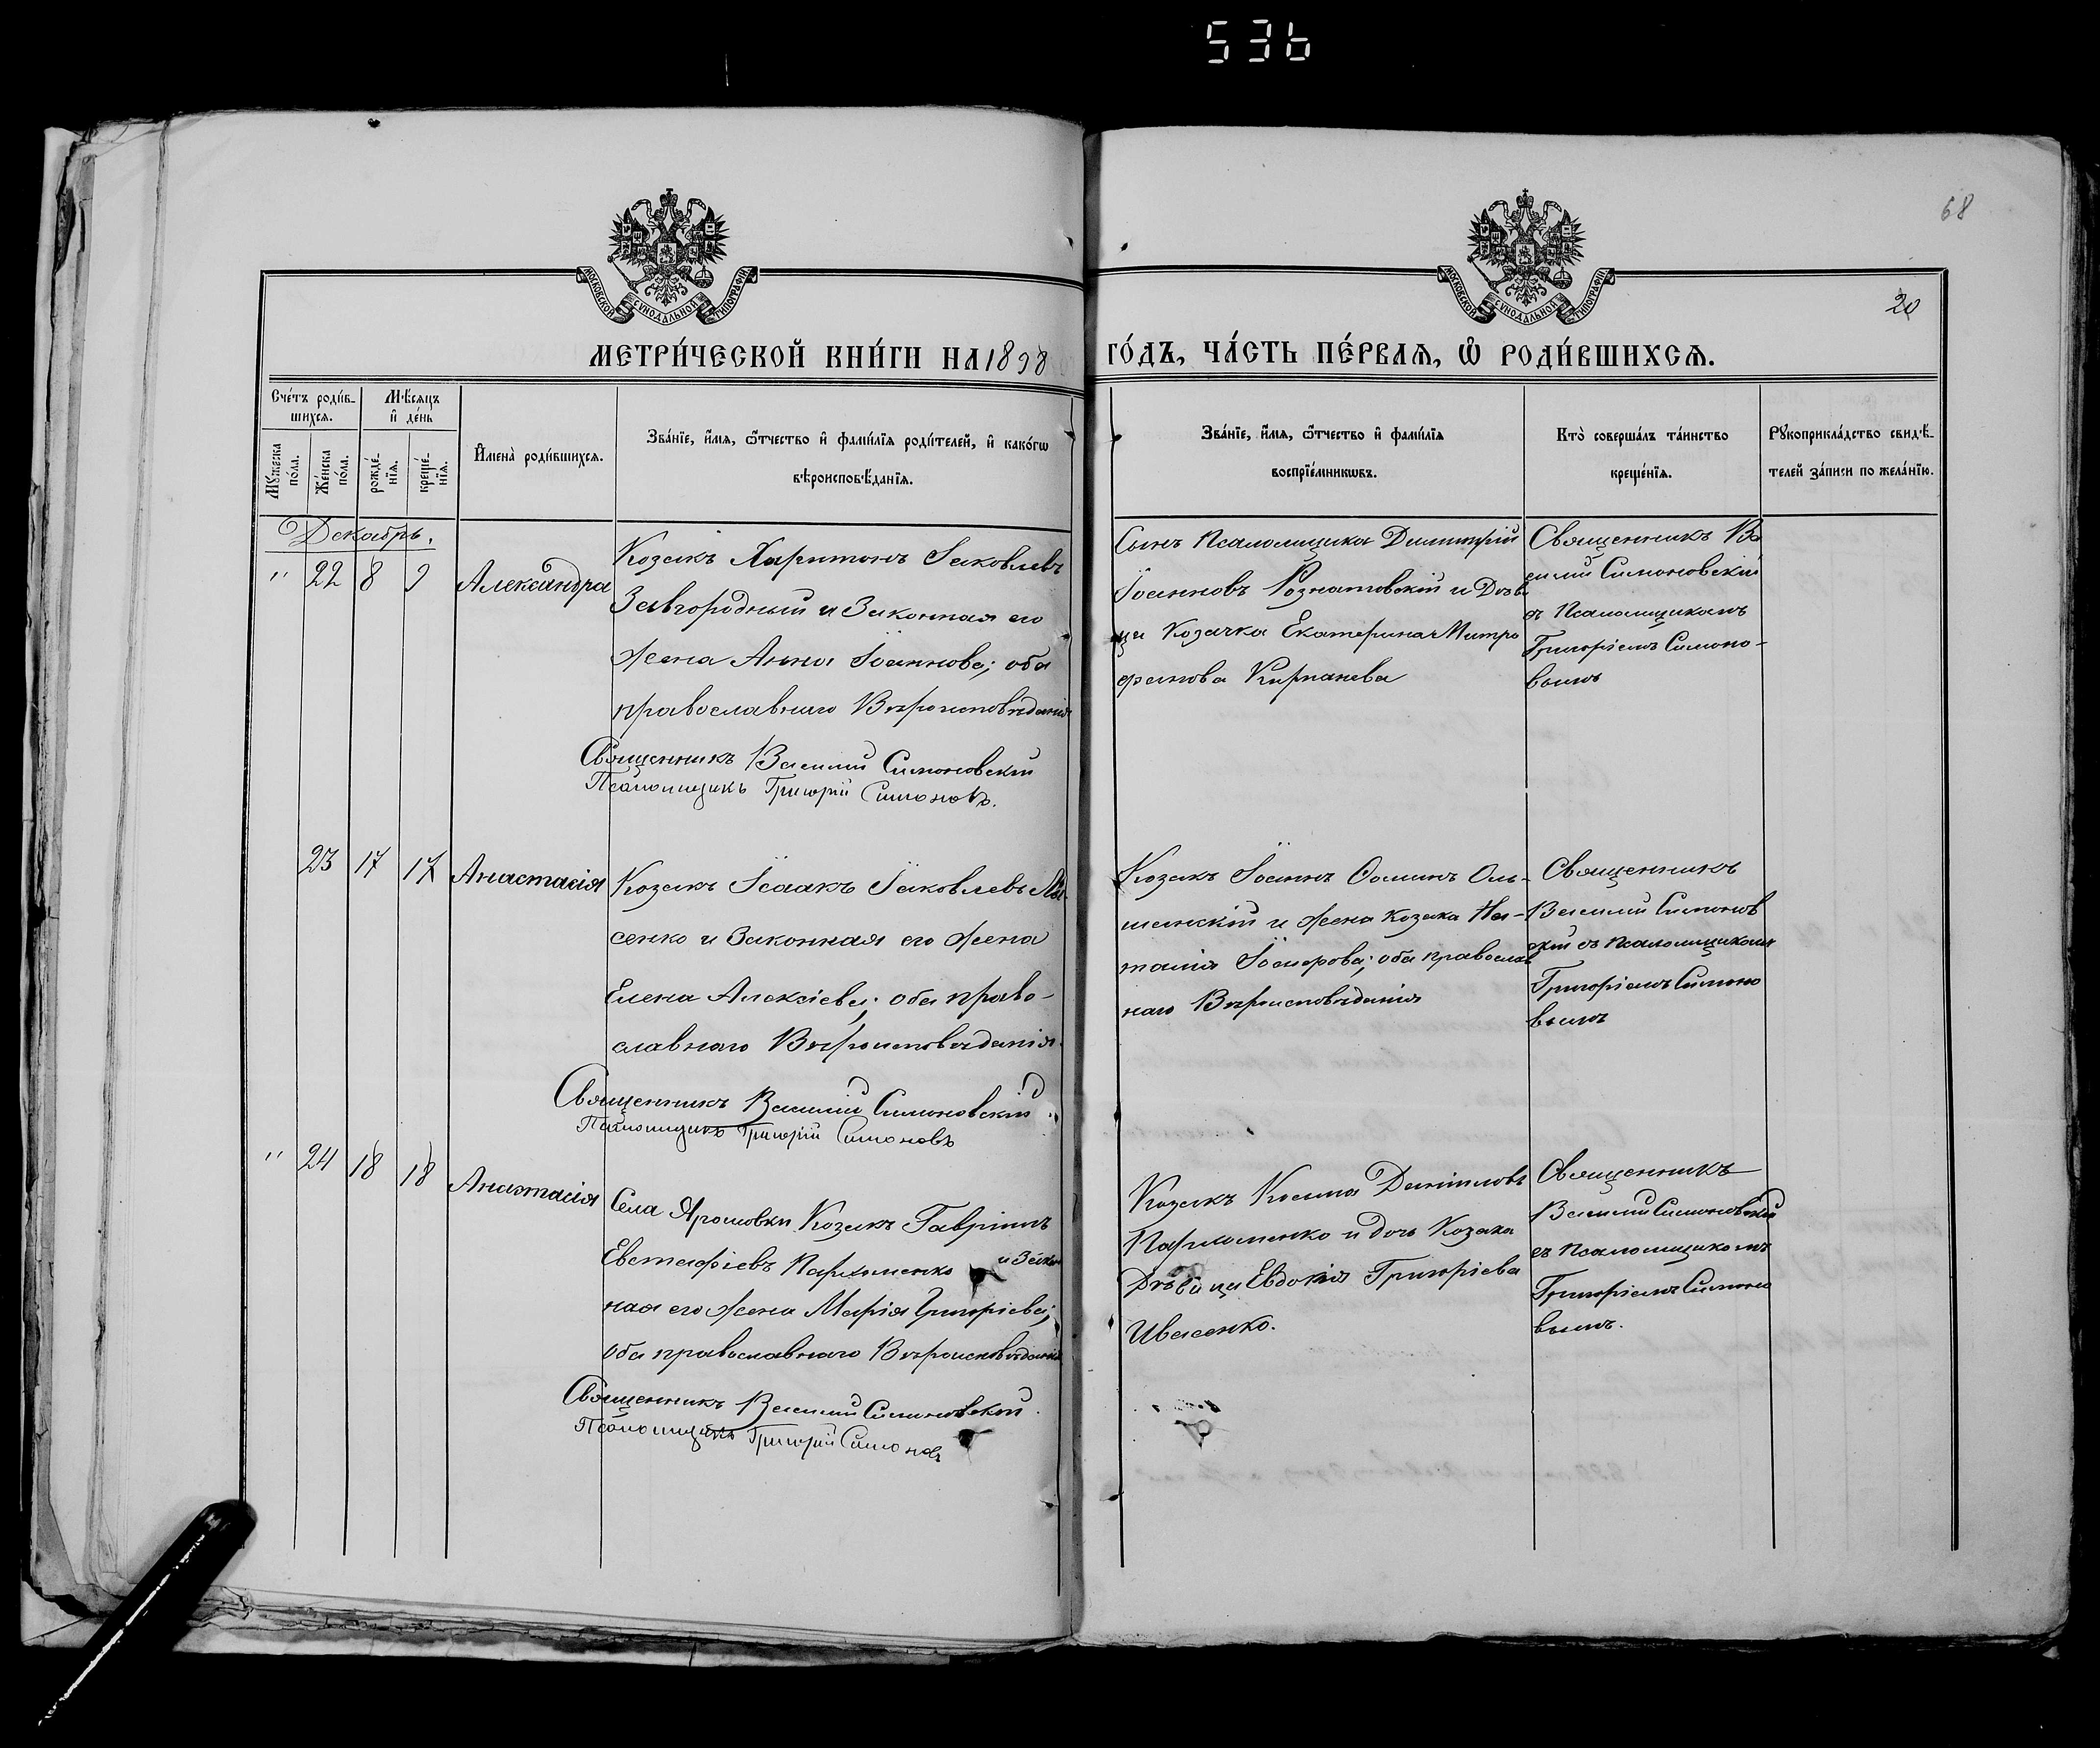 536
68
20
МОСКОВСКОЙ СѴНОДАЛЬНОЙ ТИПОГРАФІИ
МОСКОВСКОЙ СѴНОДАЛЬНОЙ ТИПОГРАФІИ
МЕТРИ́ЧЕСКОЙ КНИ́ГИ НА 1898 ГО́ДЪ, ЧА́СТЬ ПЕ́РВАѦ, Ѡ҆ РОДИ́ВШИХСѦ.
Сче́тъ роди́в-
шихсѧ.
Мꙋ́жеска
по́ла.
Же́нска
по́ла.
Мѣ́сѧцъ
и҆ де́нь
рожде́-
нїѧ.
креще́-
нїѧ.
И҆мена̀ роди́вшихсѧ.
Зва́нїе, и҆́мѧ, ѻ҆́тчество и҆ фами́лїѧ роди́телей, и҆ како́гѡ
вѣроисповѣ́данїѧ.
Зва́нїе, и҆́мѧ, ѻ҆́тчество и҆ фами́лїѧ
воспрїе́мникѡвъ.
Кто̀ соверша́лъ та́инство
креще́нїѧ.
Рꙋкоприкла́дство свидѣ́-
телей за́писи по жела́нїю.
Декабрь.
" 22 8 9 Александра
Козакъ Харитонъ Іаковлевъ
Завгородный и Законная его
жена Анна Іоаннова; оба
православнаго Вѣроисповѣданія
Священникъ Василій Симоновскій
Псаломщикъ Григорій Симоновъ.
Сынъ Псаломщика Димитрій
Іоанновъ Рознатовскій и Дѣви
ца Козачка Екатерина Митро
фанова Кирпанева
Священникъ Ва
силій Симоновскій
съ Псаломщикомъ
Григоріемъ Симоно-
вымъ
23 17 17 Анастасія
Козакъ Ісаакъ Іаковлевъ Лы-
сенко и Законная его жена
Елена Алексіева; оба право-
славнаго Вѣроисповѣданія.
Священникъ Василій Симоновскій
Псаломщикъ Григорій Симоновъ
Козакъ Іоаннъ Ѳоминъ Оль-
шанскій и жена козака На-
талія Іосифова; оба православ
наго Вѣроисповѣданія
Священникъ
Василій Симонов
скій съ псаломщикомъ
Григоріемъ Симоно
вымъ
" 24 18 18 Анастасія
Села Ярошовки Козакъ Гавріилъ
Евстафіевъ Пархоменко и Закон
ная его жена Марія Григоріева;
оба православнаго Вѣроисповѣданія
Священникъ Василій Симоновскій
Псаломщикъ Григорій Симоновъ
Козакъ Косма Даніиловъ
Пархоменко и дочь Козака
Дѣвица Евдокія Григоріева
Ивасенко.
Священникъ
Василій Симоновскій
съ псаломщикомъ
Григоріемъ Симоно
вымъ.